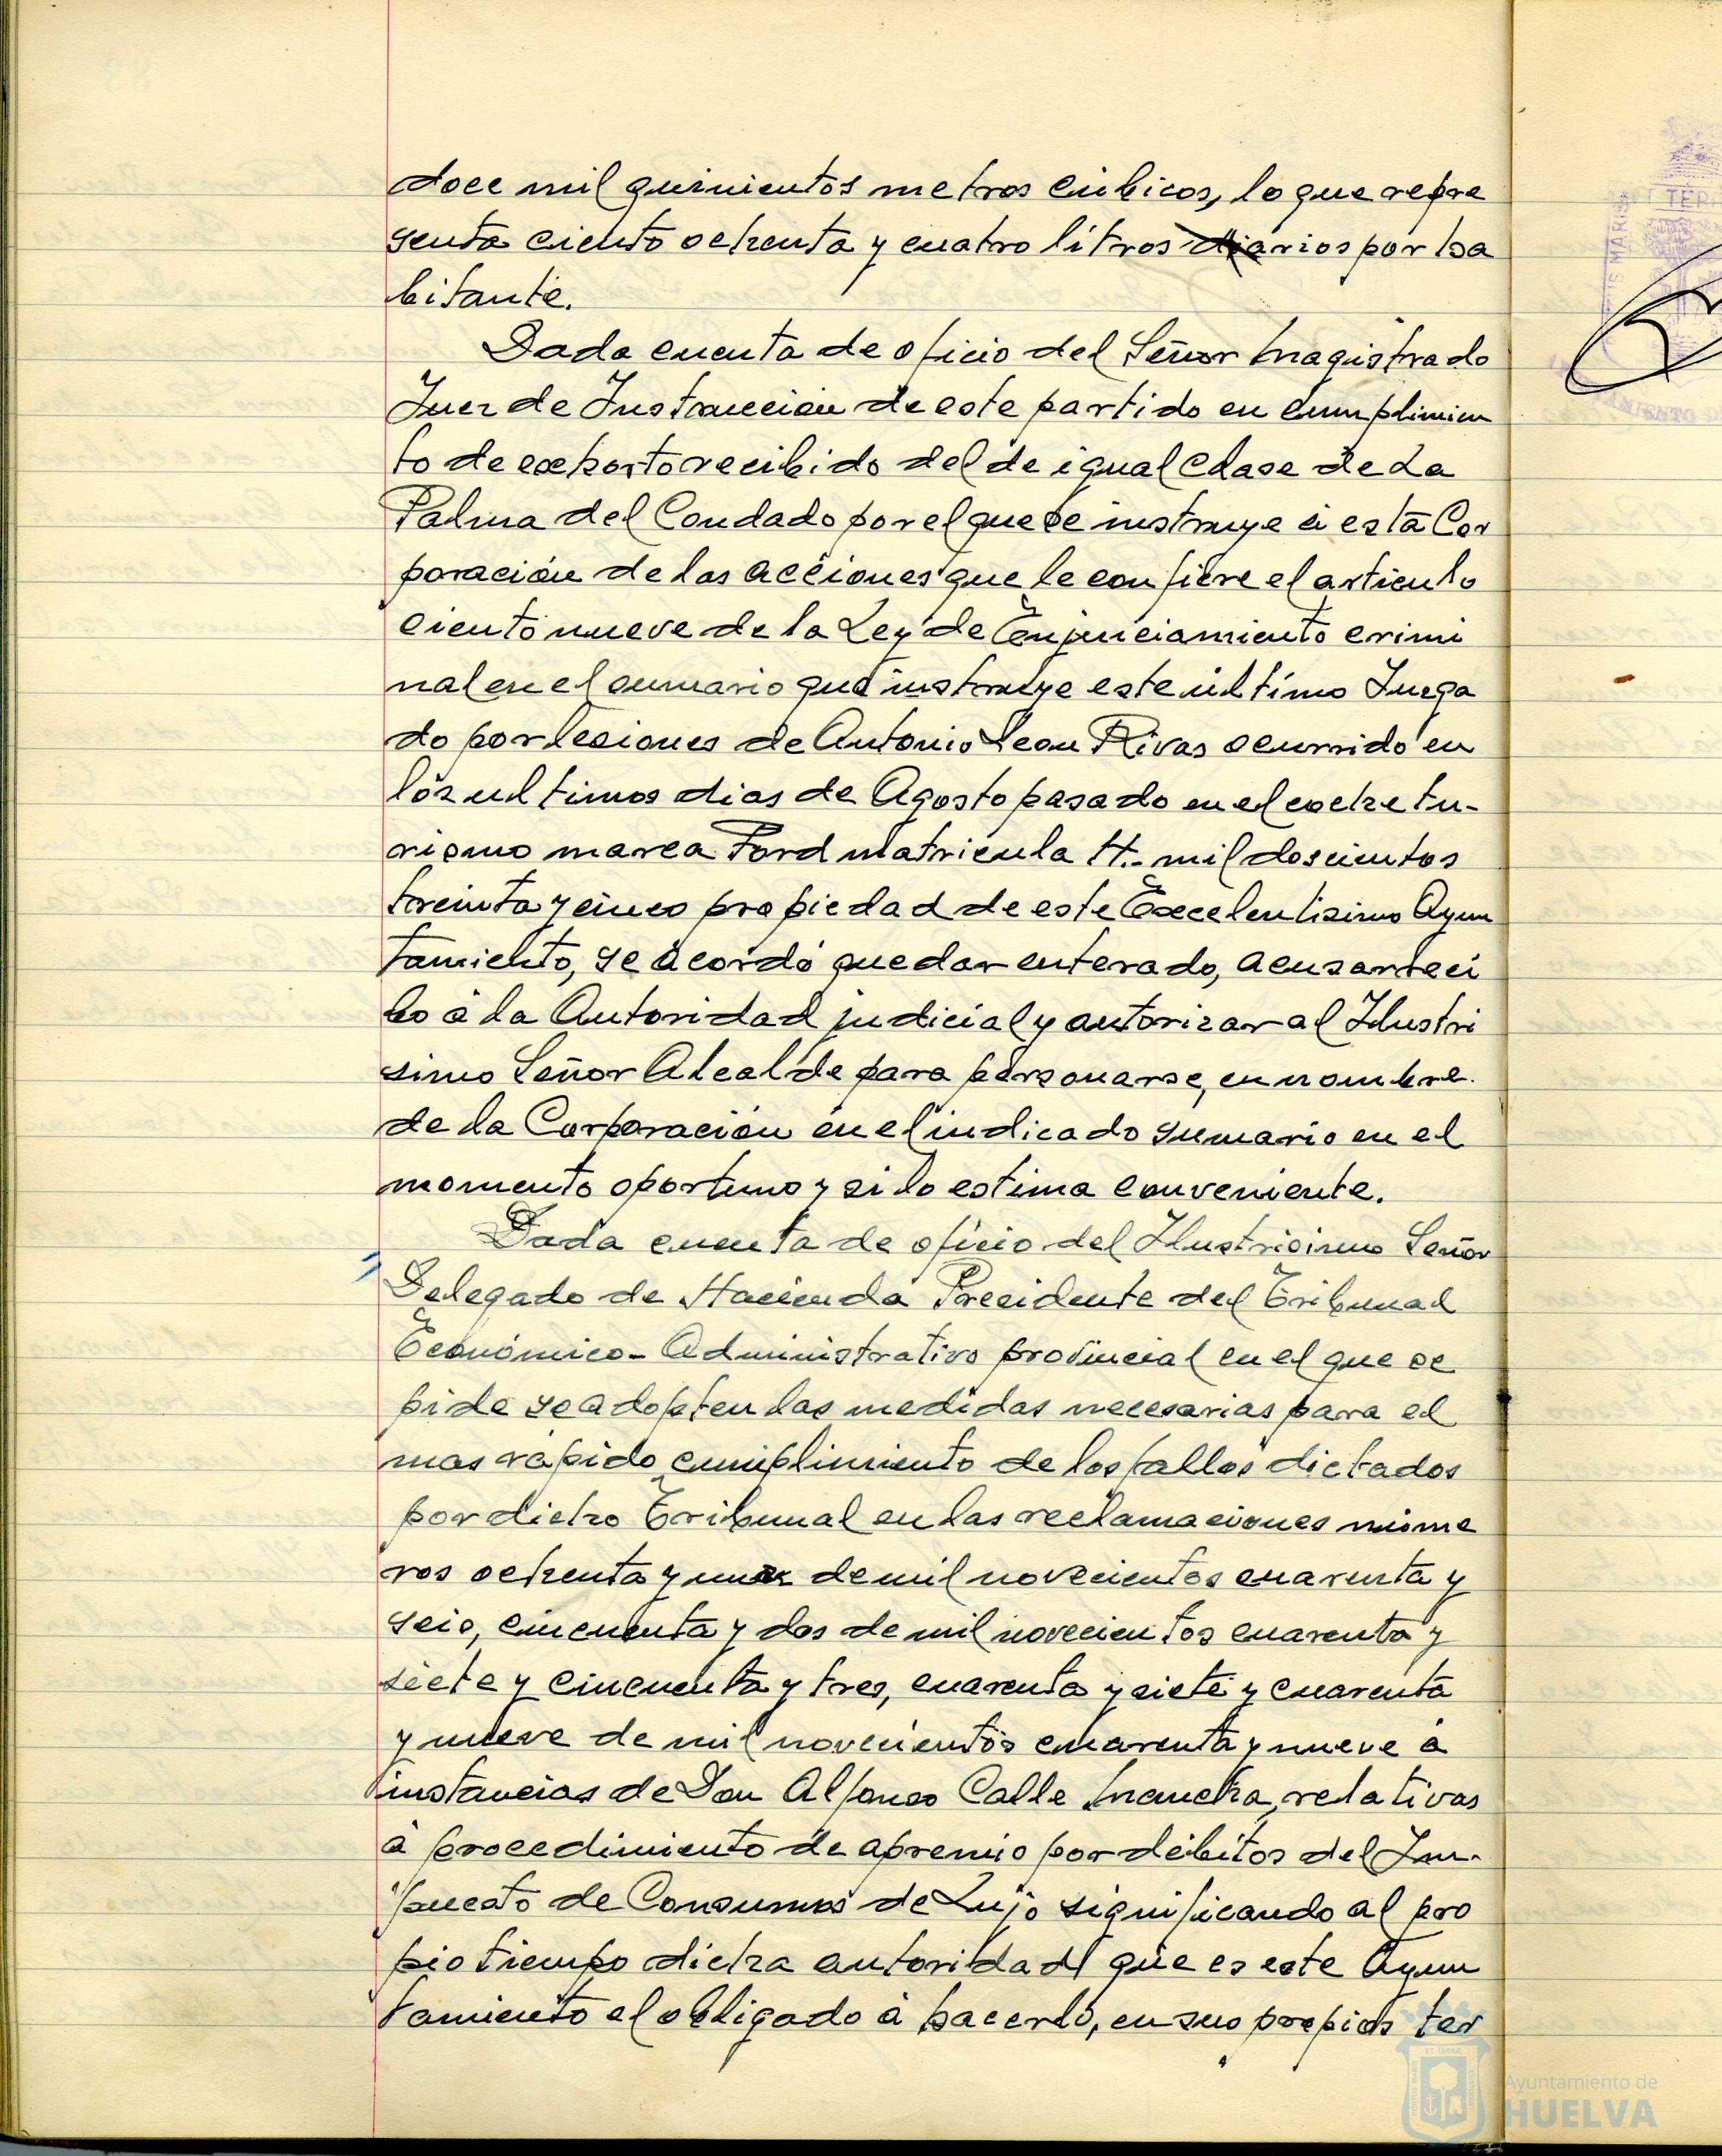 doce mil quinientos metros cúbicos, lo que repre
senta ciento ochenta y cuatro litros diarios por ha
bitante.
Dada cuenta de oficio del Señor Magistrado
Juez de Instrucción de este partido en cumplimien
to de exhorto recibido del de igual clase de La
Palma del Condado por el que se instruye á esta Cor
poración de las acciones que le confiere el artículo
ciento nueve de la Ley de Enjuiciamiento crimi
nal en el sumario que instruye este último Juzga
do por lesiones de Antonio Leon Rivas ocurrido en
los ultimos dias de Agosto pasado en el coche tu-
rismo marca Ford matricula H.- mil doscientos
treinta y cinco propiedad de este Excelentisimo Ayun
tamiento, se acordó quedar enterado, acusar reci
bo á la Autoridad judicial y autorizar al Ilustri
simo Señor Alcalde para personarse, en nombre
de la Corporación en el indicado sumario en el
momento oportuno y si lo estima conveniente.
Dada cuenta de oficio del Ilustrisimo Señor
Delegado de Hacienda Presidente del Tribunal
Económico-Administrativo provincial en el que se
pide se adopten las medidas necesarias para el
mas rápido cumplimiento de los fallos dictados
por dicho Tribunal en las reclamaciones núme
ros ochenta y una de mil novecientos cuarenta y
seis, cincuenta y dos de mil novecientos cuarenta y
siete y cincuenta y tres, cuarenta y siete y cuarenta
y nueve de mil novecientos cuarenta y nueve á
instancias de Don Alfonso Calle Mancha, relativas
á procedimiento de apremio por débitos del Im-
puesto de Consumos de Lujo significando al pro
pio tiempo dicha autoridad que es este Ayun
tamiento el obligado á hacerlo, en sus propios tér
Ayuntamiento de
HUELVA